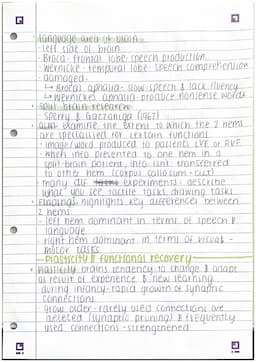 language area of brain
- left side of brain
- Broca- frontal lobe- speech production
- Wernicke- temporal lobe- speech comprehension
- damaged-
↳ Brocas aphasia- slow speech & lack fluency
↳ Wernickes aphasia- produce nonsense words
split brain research
- Sperry & Gazzaniga (1967)
- aim- examine the extent to which the 2 hems
are specialised for certain functions
- image/word produced to patients LVF or RVF
- when info presented to one hem in a
split brain patient, info isnt transferred
to other hem (corpus callosum - cut)
many experiments: describe
what you see, tactile tasks, drawing tasks
- Findings- highlights key differences between
2 hems:
- left hem dominant in terms of speech &
language
right hem dominant in terms of visual -
motor tasks
- Plasticity & functional recovery
Plasticity- brains tendency to change & adapt
as result of experience & new learning
during infancy- rapid growth of synaptic
connections
grow older- rarely used connections are
deleted (synaptic pruning) & frequently
used connections - strengthened